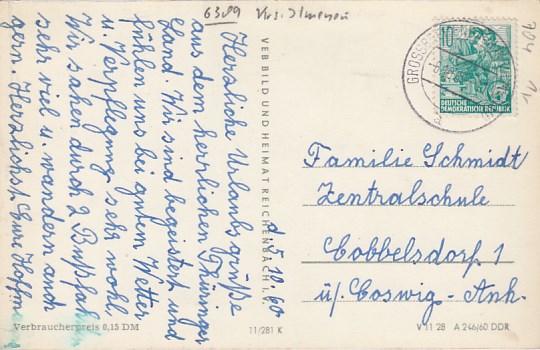 6309 Krs. Ilmenau
704
d. 5.10.60
Herzliche Urlaubsgrüße
aus dem herrlichen Thüringer
Land. Wir sind begeistert und
fühlen uns bei guten Wetter
u. Verpflegung sehr wohl.
Wir sahen durch 2 Busfahrten
sehr viel u. wandern auch
gern. Herzlichst Eure Hoffm
VEB BILD UND HEIMAT REICHENBACH I. V.
GROSSBREITENBACH
10
DEUTSCHE
DEMOKRATISCHE REPUBLIK
Familie Schmidt
Zentralschule
Cobbelsdorf 1
ü/ Coswig-Anh.
Verbraucherpreis 0,15 DM
11/281 K
V 11 28 A 246/60 DDR